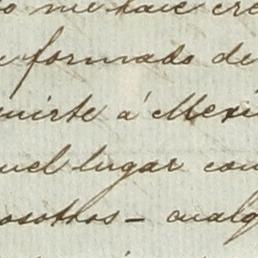 o me hace cre
formado de
uirte á Mexi
uel lugar con
osotros — cualq